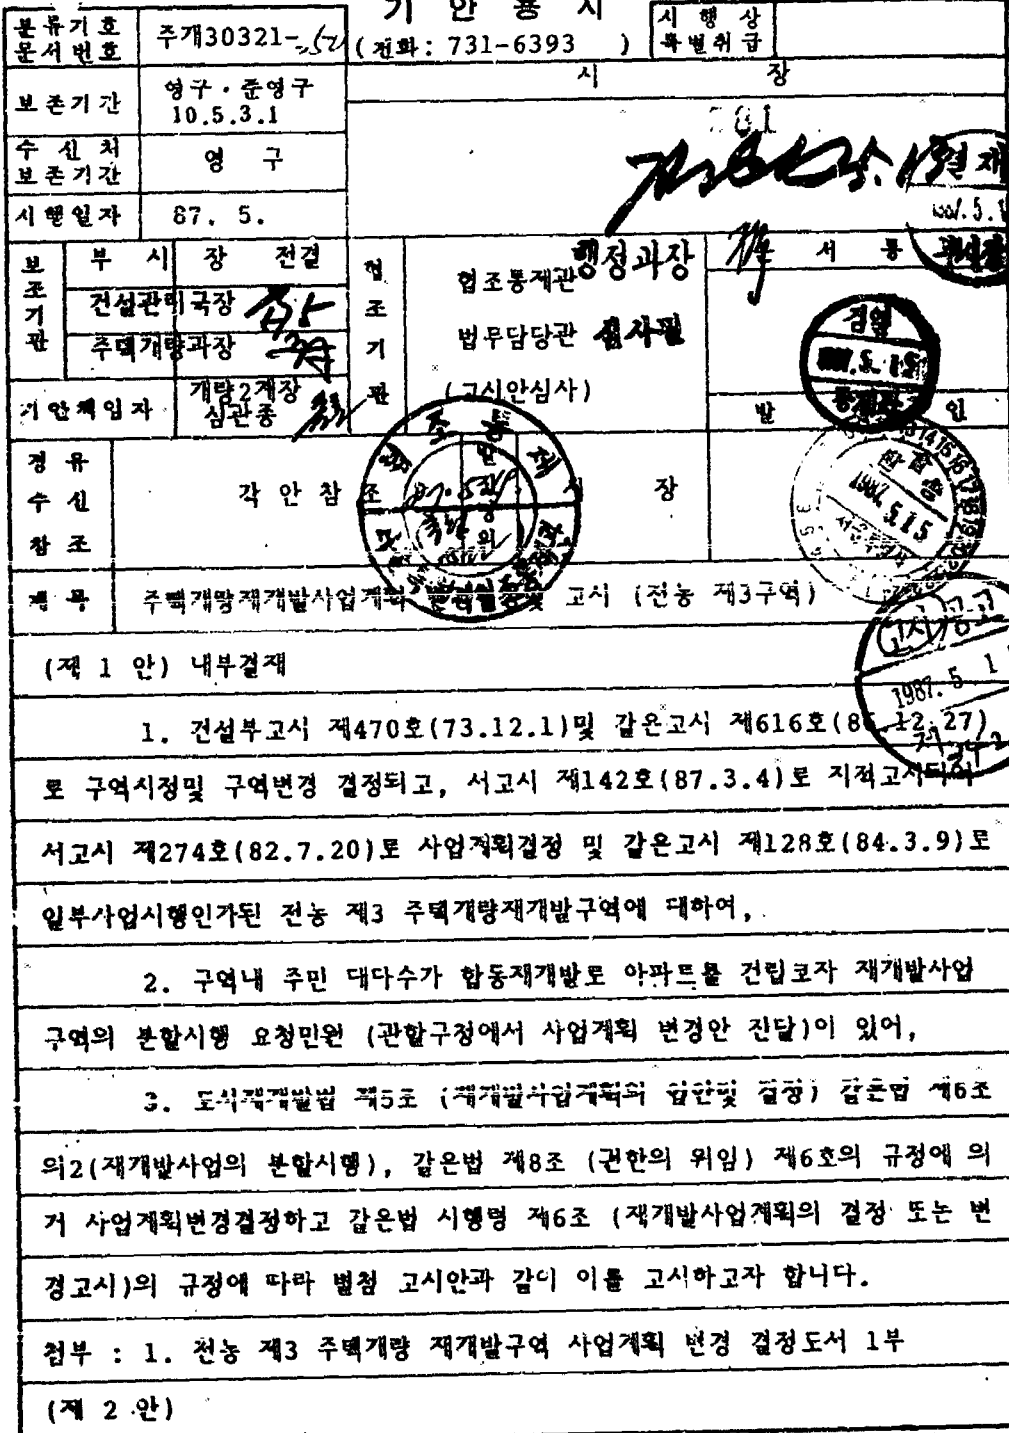 기 안 용 지
분류기호
문서번호
주개30321-
(전화: 731-6393 )
시 행 상
특별취급
보존기간
영구·준영구
10.5.3.1
시 장
수 신 처
보존기간
영 구
시행일자
87. 5.
보조기관
부 시 장 전결
건설관리국장
주택개량과장
협조기관
행정과장
협조통제관
법무담당관 심사필
(고시안심사)
문 서 통
기안책임자
개량2계장
심관종
발 인
경 유
수 신
참 조
각 안 참 조
시 장
1987.5.15
제 목
주택개량재개발사업계획
고시 (전농 제3구역)
고시공고
1987. 5. 1
(제 1 안) 내부결재
1. 건설부고시 제470호(73.12.1)및 같은고시 제616호(86.12.27)
로 구역지정및 구역변경 결정되고, 서고시 제142호(87.3.4)로 지적고시되어
서고시 제274호(82.7.20)로 사업계획결정 및 같은고시 제128호(84.3.9)로
일부사업시행인가된 전농 제3 주택개량재개발구역에 대하여,
2. 구역내 주민 대다수가 합동재개발로 아파트를 건립코자 재개발사업
구역의 분할시행 요청민원 (관할구청에서 사업계획 변경안 진달)이 있어,
3. 도시재개발법 제5조 (재개발사업계획의 입안및 결정) 같은법 제6조
의2(재개발사업의 분할시행), 같은법 제8조 (권한의 위임) 제6호의 규정에 의
거 사업계획변경결정하고 같은법 시행령 제6조 (재개발사업계획의 결정 또는 변
경고시)의 규정에 따라 별첨 고시안과 같이 이를 고시하고자 합니다.
첨부 : 1. 전농 제3 주택개량 재개발구역 사업계획 변경 결정도서 1부
(제 2 안)